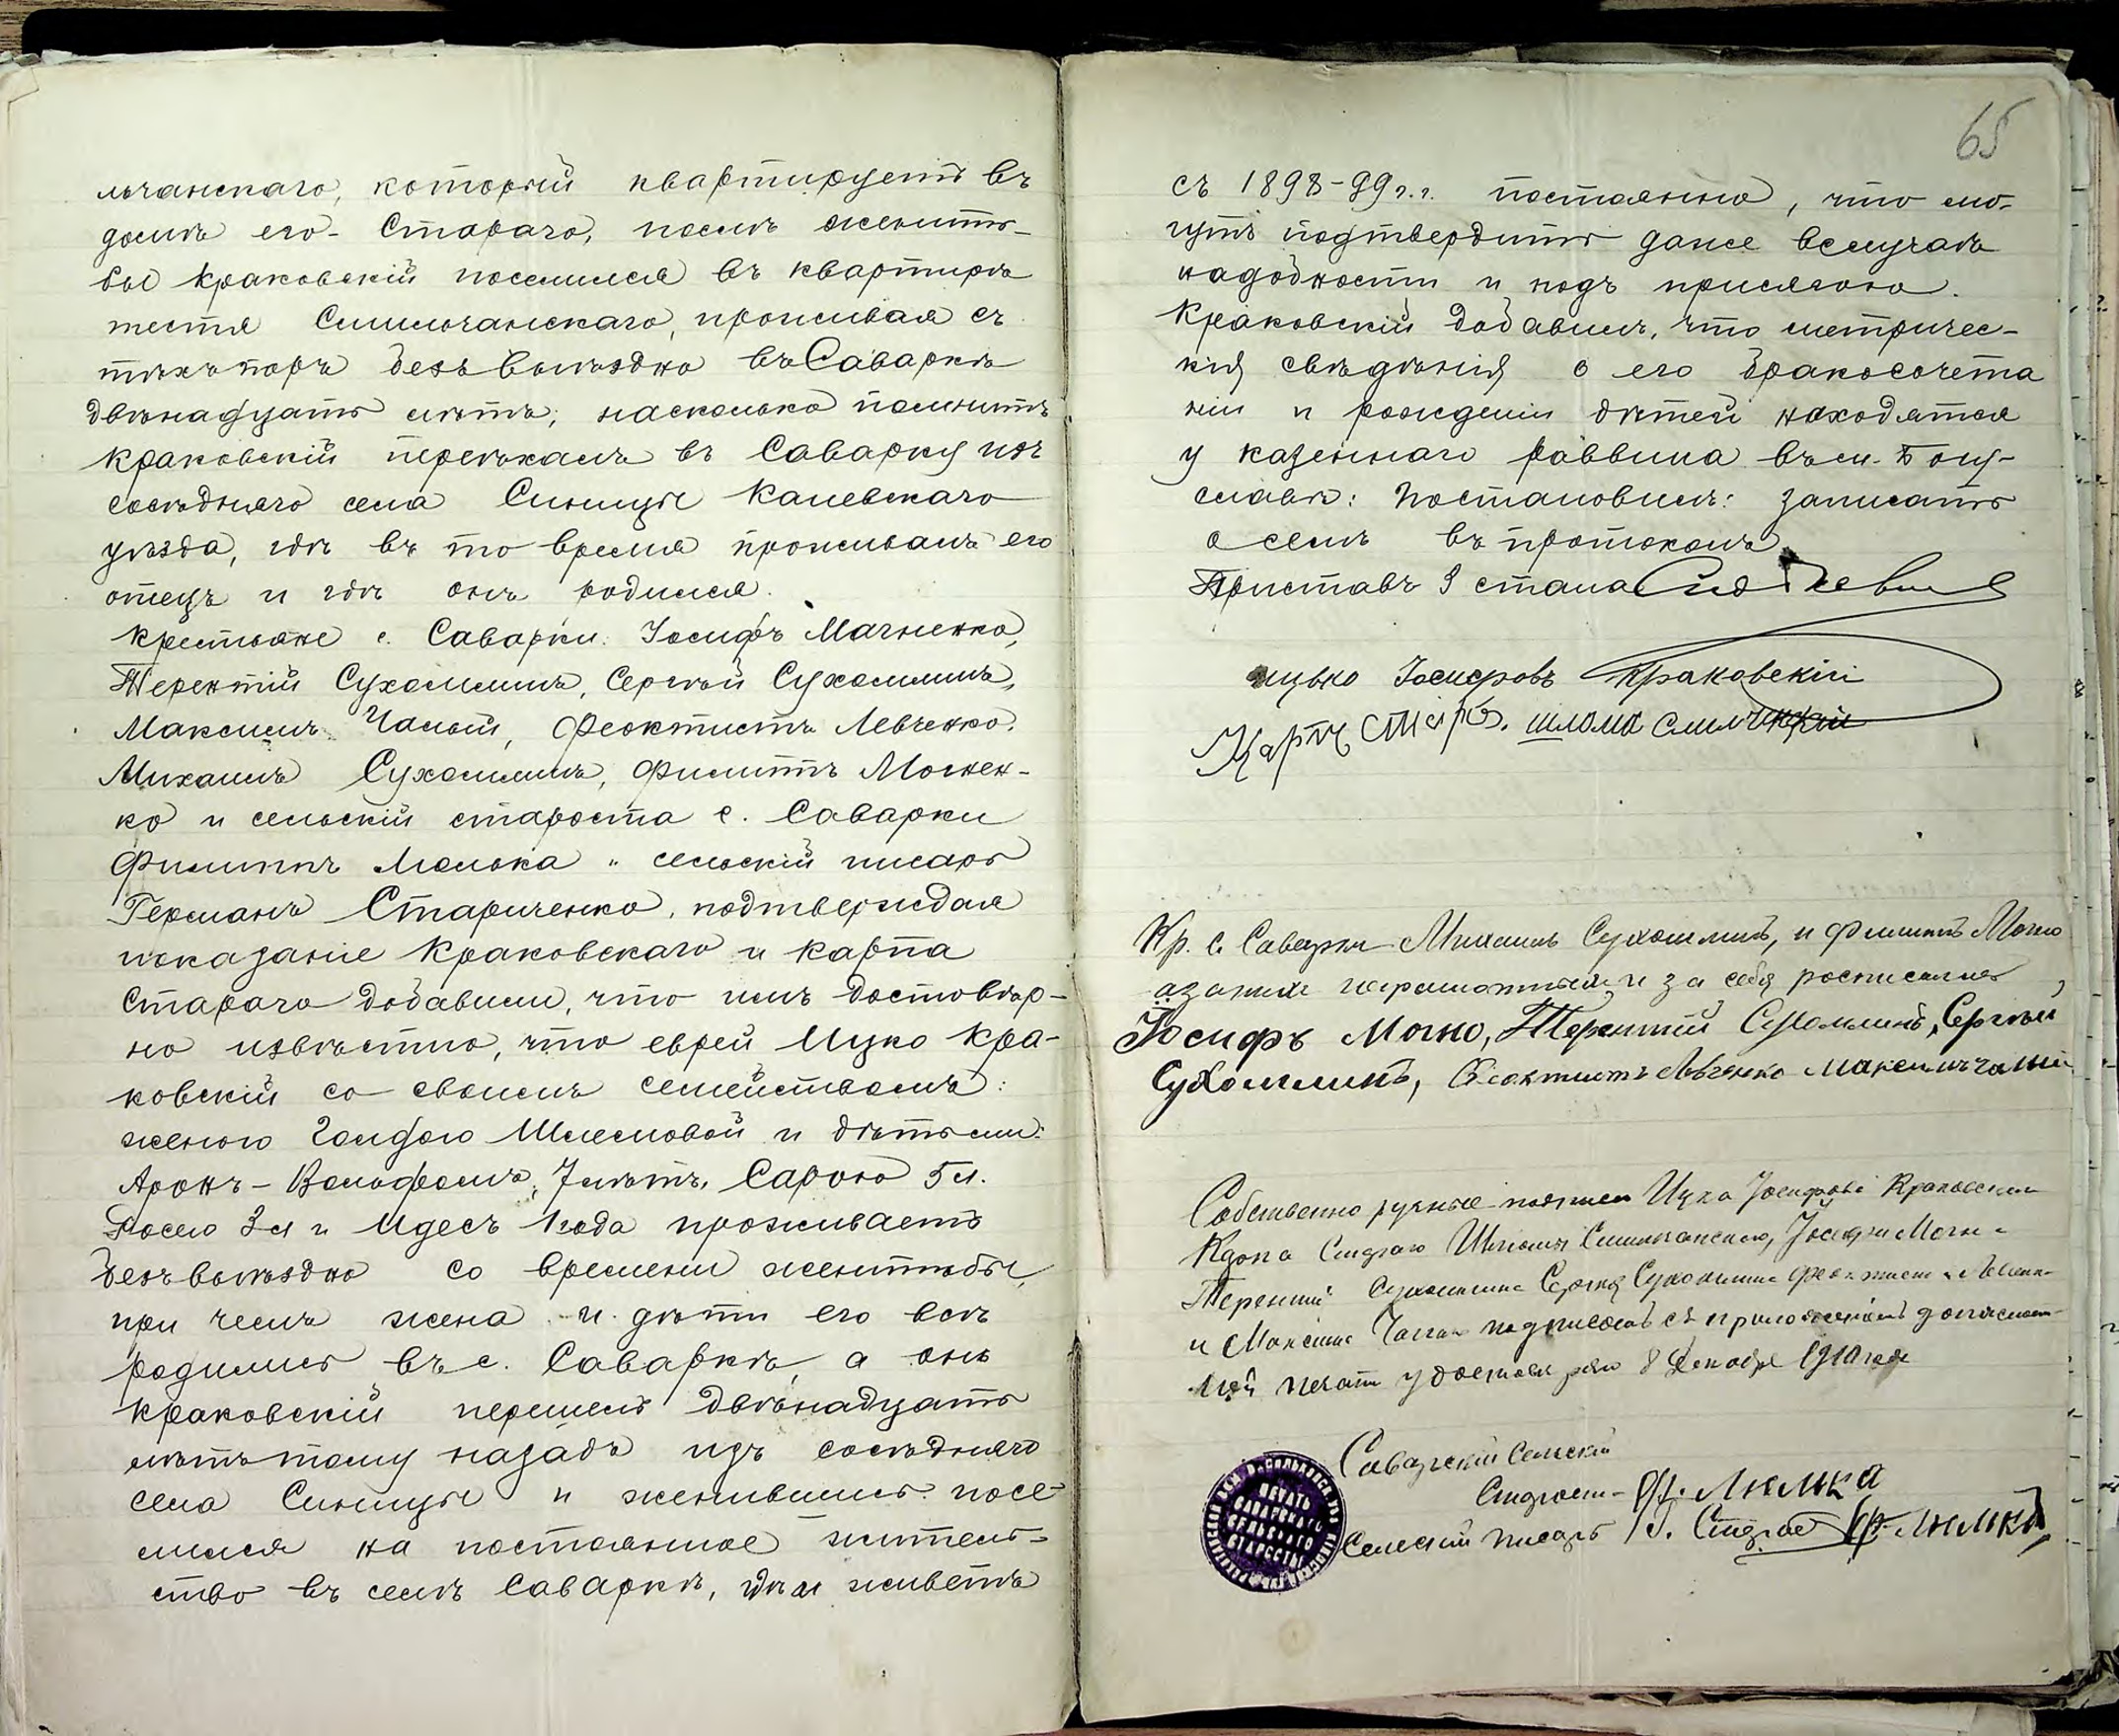 льчанскаго, который квартируетъ въ
домѣ его - Стараго, послѣ женить-
бы Краковскій поселился въ квартирѣ
тестя Смильчанскаго, проживая съ
тѣхъ поръ безъ выѣздно въ Саваркѣ
двѣнадцать лѣтъ, насколько помнитъ
Краковскій переѣхалъ въ Саварку изъ
сосѣдняго села Синицы Каневскаго
уѣзда, гдѣ въ то время проживалъ его
отецъ и гдѣ онъ родился.
Крестьяне с. Саварки: Іосифъ Магненко,
Терентій Сухомлинъ, Сергѣй Сухомлинъ,
Максимъ Чалый, Феоктистъ Левченко,
Михаилъ Сухомлинъ, Филиппъ Могнен-
ко и сельскій староста с. Саварки
Филиппъ Люлька и сельскій писарь
Германъ Стариченко, подтверждая
показаніе Краковскаго и Карпа
Стараго добавили, что имъ достовѣр-
но извѣстно, что еврей Ицко Кра-
ковскій со своимъ семействомъ:
женою Голдою Шлемовой и дѣтьми:
Аронъ-Вольфомъ, 7 лѣтъ, Сарою 5 л.
Іосею 3 л и Идесъ 1 года проживаетъ
безъ выѣздно со времени женитьбы,
при чемъ жена и дѣти его всѣ
родились въ с. Саваркѣ, а онъ
Краковскій перешелъ двѣнадцать
лѣтъ тому назадъ изъ сосѣдняго
села Синицы и женившись посе-
лился на постоянное житель-
ство въ селѣ Саваркѣ, гдѣ и живетъ
65
съ 1898-99 г.г. постоянно, что мо-
гутъ подтвердить даже вслучаѣ
надобности и подъ присягою.
Краковскій добавилъ, что метричес-
кія свѣдѣнія о его бракосочета
ніи и рожденіи дѣтей находятся
у казеннаго раввина въ м. Богу-
славѣ: Постановилъ: записать
о семъ въ протоколъ.
Приставъ 3 стана
ицько Іосифовъ Краковскій
Карпъ Старо. шлома
Кр. с. Саварки Михаилъ Сухомлинъ, и Филиппъ Могно
неграмотныи и за себя росписались
Іосифъ Могно, Терентій Сухомлинъ, Сергѣй
Сухомлинъ, Феоктистъ Левченко Максимъ чалый
Собственно ручные подписи Ицка Іосифова Краковскаго
Карпа Стараго Шлiомы Смильчанскаго, Іосифа Могн-
Терентий Сухомлина Сергѣя Сухомлина Феоктиста Левченк-
и Максима Чалаго подписомъ съ приложеніемъ должност-
ной печати удостовѣряю 8 Декабря 1910 года
Саварскій Сельскій
Старост- Ф. Люлька
Сельскій писарь Г. Ф. Люлька
ПЕЧАТЬ
САВАРСКАГО
СЕЛЬСКАГО
СТАРОСТЫ